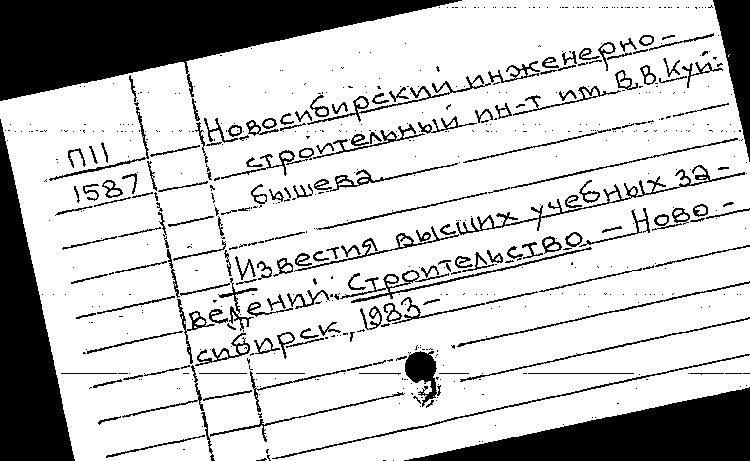 П11
1587
Новосибирский инженерно-
строительный ин-т им. В.В.Куй-
бышева.
Известия высших учебных за-
ведений. Строительство. – Ново-
сибирск, 1983–